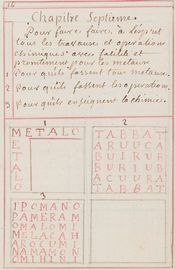 16
Chapitre Septieme
Pour faire faire a l'esprit
tous les travaux et operations
chimiques avec facilité et
promtement pour les metaux
1 Pour qu'ils fassent tous metaux.
2 Pour qu'ils fassent les operations.
3 Pour qu'ils enseignent la chimie.
1
METALO
E
T
A
L
O
2
TABBAT
ARUUCA
BUIRUB
BURIUB
ACUURA
TABBAT
3
IPOMANO
PAMERAM
OMALOMI
MELACAH
AROCUMI
NAMAMON
OMIHINI